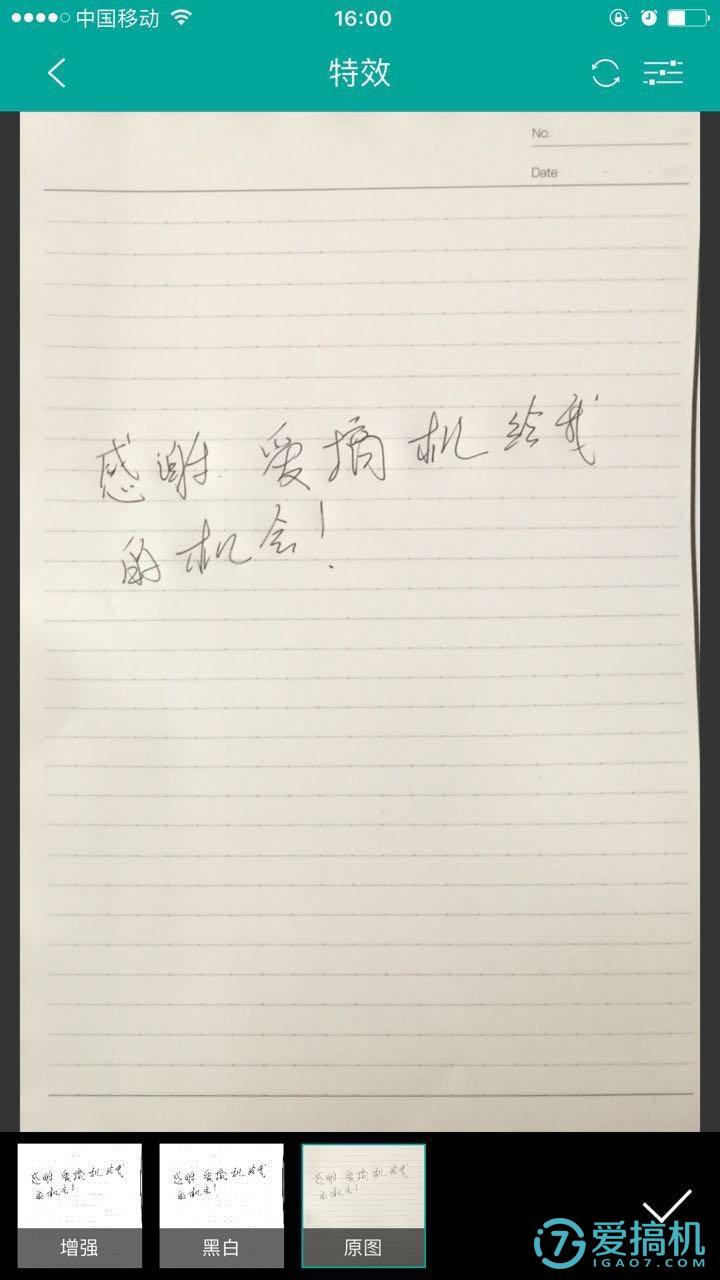 中国移动 16:00
特效
No.
Date
感谢 爱搞机给我
的机会!
感谢 爱搞机给我
的机会!
感谢 爱搞机给我
的机会!
感谢 爱搞机给我
的机会!
增强 黑白 原图
爱搞机
IGAO7.COM